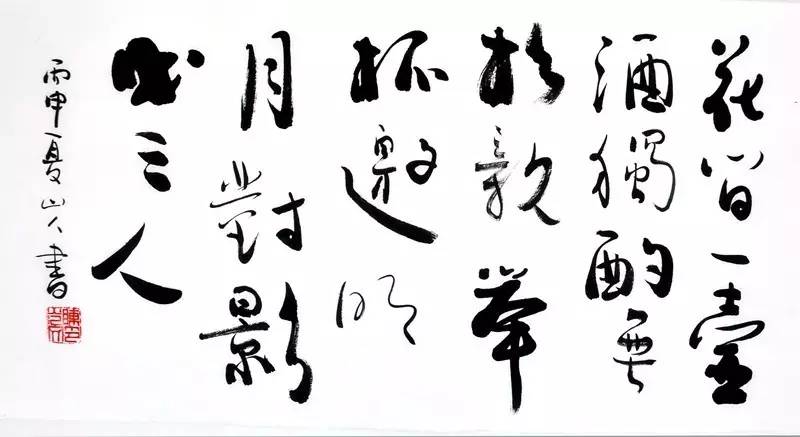 花間一壺
酒獨酌無
相親举
杯邀明
月對影
成三人
丙申夏山人書